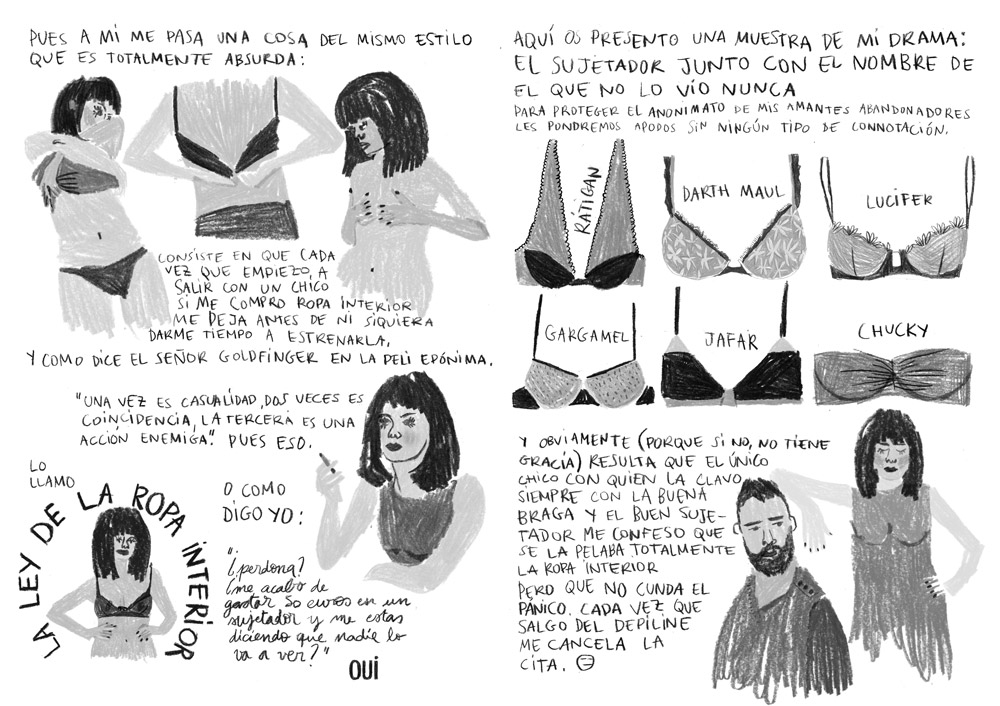 PUES A MÍ ME PASA UNA COSA DEL MISMO ESTILO
QUE ES TOTALMENTE ABSURDA:
CONSISTE EN QUE CADA
VEZ QUE EMPIEZO A
SALIR CON UN CHICO
SI ME COMPRO ROPA INTERIOR
ME DEJA ANTES DE NI SIQUIERA
DARME TIEMPO A ESTRENARLA.
Y COMO DICE EL SEÑOR GOLDFINGER EN LA PELI EPÓNIMA.
"UNA VEZ ES CASUALIDAD, DOS VECES ES
COINCIDENCIA, LA TERCERA ES UNA
ACCIÓN ENEMIGA". PUES ESO.
LO
LLAMO
LA LEY DE LA ROPA INTERIOR
O COMO
DIGO YO:
"¿¡perdona?
¿me acabo de
gastar 50 euros en un
sujetador y me estas
diciendo que nadie lo
va a ver?"
OUI
AQUÍ OS PRESENTO UNA MUESTRA DE MI DRAMA:
EL SUJETADOR JUNTO CON EL NOMBRE DE
EL QUE NO LO VÍO NUNCA
PARA PROTEGER EL ANONIMATO DE MIS AMANTES ABANDONADORES
LES PONDREMOS APODOS SIN NINGÚN TIPO DE CONNOTACIÓN.
RÁTIGAN
DARTH MAUL
LUCIFER
GARGAMEL
JAFAR
CHUCKY
Y OBVIAMENTE (PORQUE SI NO, NO TIENE
GRACIA) RESULTA QUE EL ÚNICO
CHICO CON QUIEN LA CLAVO
SIEMPRE CON LA BUENA
BRAGA Y EL BUEN SUJE-
TADOR ME CONFESO QUE
SE LA PELABA TOTALMENTE
LA ROPA INTERIOR
PERO QUE NO CUNDA EL
PÁNICO. CADA VEZ QUE
SALGO DEL DEPILINE
ME CANCELA LA
CITA.